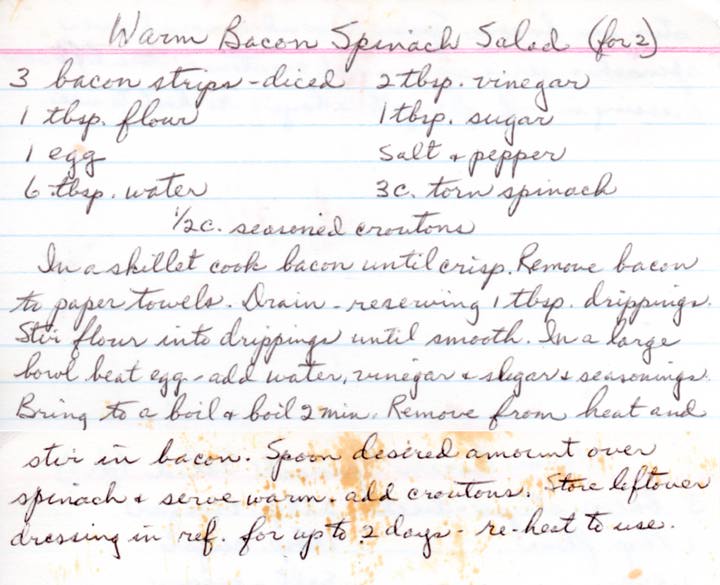 Warm Bacon Spinach Salad (for 2)
3 bacon strips - diced 2 tbsp. vinegar
1 tbsp. flour 1 tbsp. sugar
1 egg Salt & pepper
6 tbsp. water 3 c. torn spinach
1/2 c. seasoned croutons
In a skillet cook bacon until crisp. Remove bacon
to paper towels. Drain - reserving 1 tbsp. drippings.
Stir flour into drippings until smooth. In a large
bowl beat egg - add water, vinegar & sugar & seasonings.
Bring to a boil & boil 2 min. Remove from heat and
stir in bacon. Spoon desired amount over
spinach & serve warm. add croutons. Store leftover
dressing in ref. for up to 2 days - re-heat to use.